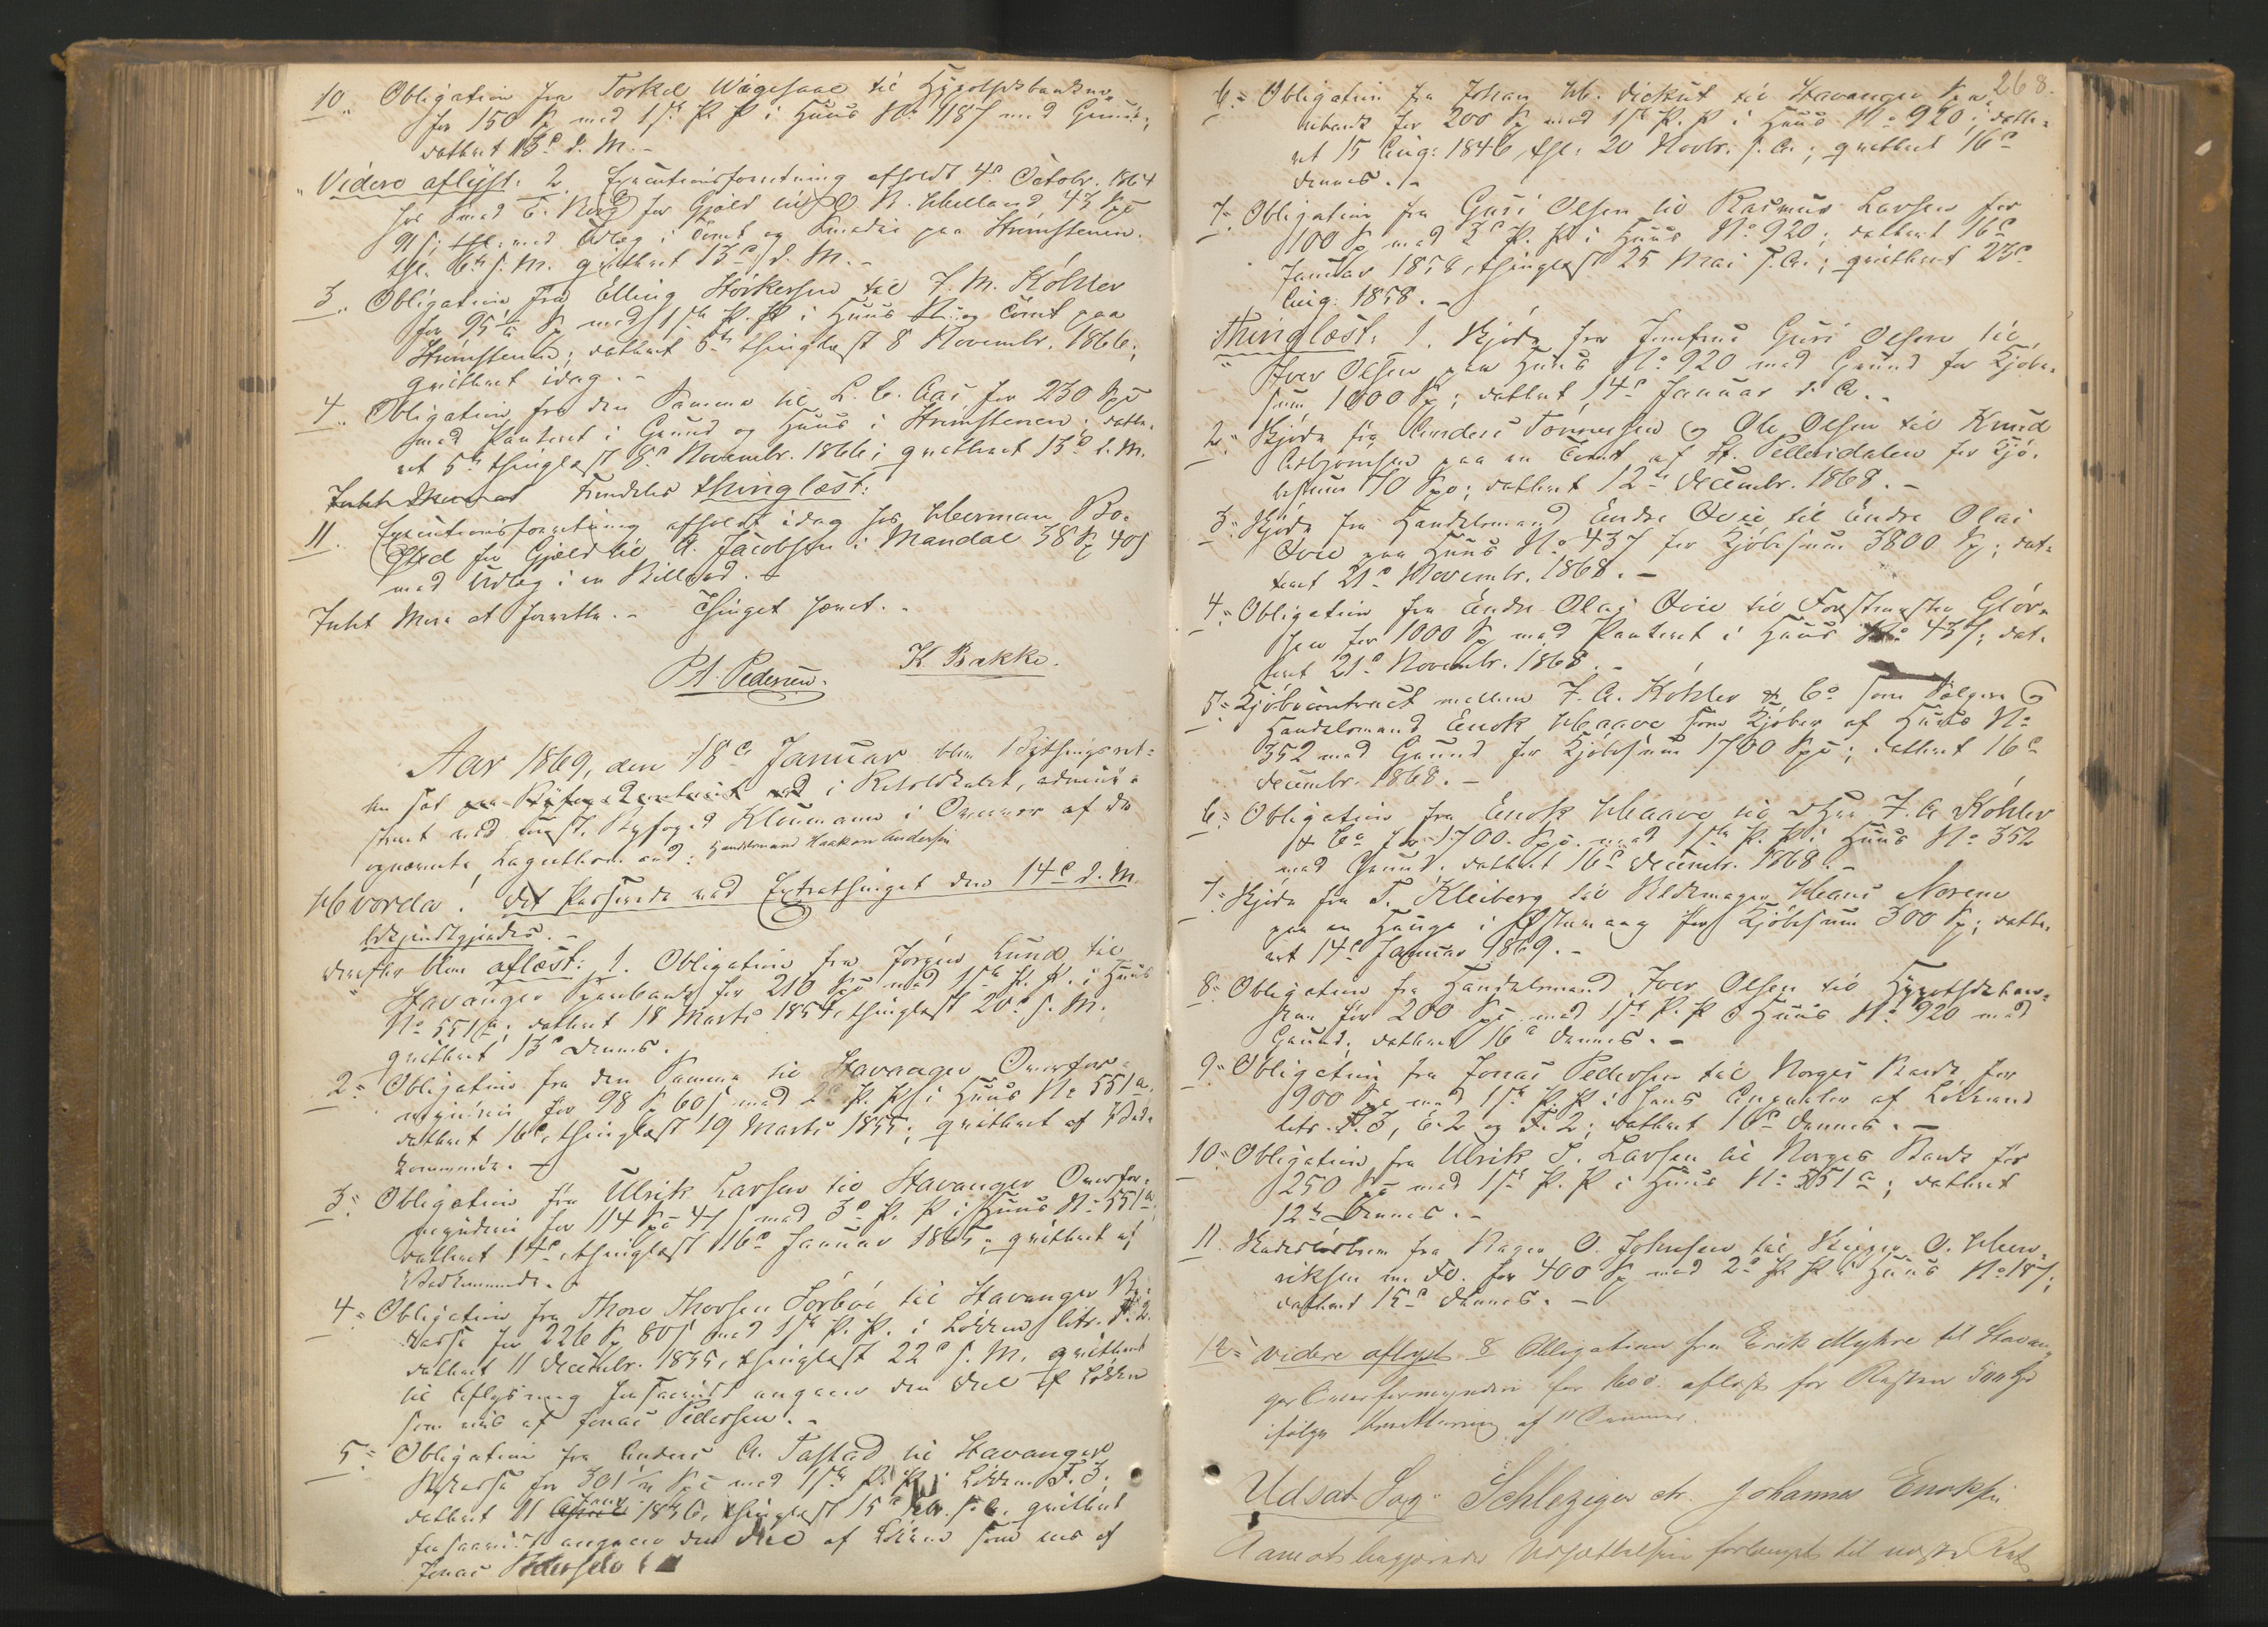 10. Obligation fra Torkel Waagesaae til Hypothekbanken
for 150 Sp med 1ste P. P. i Huus No 1187 med Grund;
dateret 13de d. M. -
Videre aflyst. 2. Executionsforretning afholdt 4de Octobr. 1864
hos Smed E. Berg for Gjæld til O. R. Helland 43 Spd
91 s; med Udlæg i Tomt og Smedie paa Strømstenen.
thl. 6te s. M. qvitteret 13de d. M. -
3. Obligation fra Elling Størkersen til J. M. Köhler
for 95 ½ Sp med 1ste P. P. i Huus og Tomt paa
Strømstenen; dateret 5te thinglæst 8 Novembr. 1866;
qvitteret idag. -
4. Obligation fra den Samme til L. C. Aas for 230 Spd
med Panteret i Grund og Huus i Strømstenen; date-
ret 5te thinglæst 8de Novembr. 1866; qvitteret 13de d. M.
Intet Mere at Fremdeles thinglæst:
11. Executionsforretning afholdt idag hos Herman Bo-
sted for Gjæld til A. Jacobsen i Mandal 38 Sp 40 s
med Udlæg i en Billard. -
Intet Mere at forrette. - Thinget hævet. -
P A. Pedersen. K Bakke.
Aar 1869, den 18de Januar blev Bythingsret-
ten sat i Retslokalet, admini-
streret ved const. Byfoged Kloumann i Overvær af de
opnævnte Laugrettesmænd: Handelsmand Haakon Andersen
Hvorda! Det Passerede ved Extrathinget den 14de d. M.
bekjendtgjordes. -
Derefter blev aflæst: 1. Obligation fra Jörgen Lund til
Stavanger Sparebank for 210 Spd med 1ste P. P. i Huus
No 551a; dateret 18 Marts 1854, thinglæst 20de s. M.
qvitteret 13de dennes.
2. Obligation fra den Samme til Stavanger Overfor-
mynderi for 98 Sp 60 s med 2de P. P. i Huus No 551a;
dateret 16de, thinglæst 19 Marts 1855; qvitteret af Ved-
kommende. -
3. Obligation fra Ulrik Larsen til Stavanger Overfor-
mynderi for 114 Spd 47 s med 3de P. P. i Huus No 551a;
dateret 14de, thinglæst 16de Januar 1865; qvitteret af
Vedkommende. -
4. Obligation fra Thore Thorsen Sörböe til Stavanger By-
kasse for 226 Sp 80 s med 1ste P. P. i Lökken litr. F. 2.
dateret 11 Decembr. 1855, thinglæst 22de s. M. qvitteret
til Aflysning forsaavidt angaaer den Deel af Lökken
som eies af Jonas Pedersen. -
5. Obligation fra Anders A. Tastad til Stavanger
Bykasse for 301 ½ Spd med 1ste P. P. i Lökken F. 3;
dateret 11 Janr 1856, thinglæst 15de s. A. qvitteret
forsaavidt angaaer den Deel af Lökken som eies af
Jonas Pedersen
268.
6. Obligation fra Johan H. Diekert til Stavanger Spa-
rebank for 200 Sp med 1ste P. P. i Huus No 920; date-
ret 15 Aug: 1846, thl. 20 Novbr. s. A.; qvitteret 16de
dennes. -
7. Obligation fra Guri Olsen til Rasmus Larsen for
100 Sp med 2de P. P. i Huus No 920; dateret 16de
Januar 1858, thinglæst 25 Mai s. A.; qvitteret 23de
Aug: 1858. -
Thinglæst: 1. Skjöde fra Jomfrue Guri Olsen til
Iver Olsen paa Huus No 920 med Grund for Kjöbe-
sum 1000 Sp; dateret 14de Januar d. A. -
2. Skjöde fra Anders Tönnesen og Ole Olsen til Knud
Asbjörnsen paa en Tomt af St. Pederidalen for Kjö-
besum 70 Spd; dateret 12te Decembr. 1868. -
3. Skjöde fra Handelsmand Endre Qvie til Endre Olai
Qvie paa Huus No 437 for Kjöbesum 3800 Sp; dat-
eret 21de Novembr. 1868. -
4. Obligation fra Endre Olai Qvie til Forstmester Glör-
sen for 1000 Sp med Panteret i Huus No 437; dat-
eret 21de Novembr. 1868. -
5. Kjöbecontract mellem J. A. Köhler & Co som Sælgere og
Handelsmand Enok Haave som Kjöber af Huus No
352 med Grund for Kjöbesum 1700 Spd; dateret 16de
Decembr. 1868. -
6. Obligation fra Enok Haave til D'Hrr J. A. Köhler
& Co for 1700 Spd med 1ste P. P. i Huus No 352
med Grund; dateret 16de Decembr. 1868. -
7. Skjöde fra T. Kleiberg til Rebmager Hans Norem
paa en Hauge i Östervaag for Kjöbesum 300 Sp; date-
ret 14de Januar 1869. -
8. Obligation fra Handelsmand Iver Olsen til Hypothekban-
ken for 200 Spd med 1ste P. P. i Huus No 920 med
Grund; dateret 16de dennes. -
9. Obligation fra Jonas Pedersen til Norges Bank for
900 Spd med 1ste P. P. i hans Anparter af Lökkene
litr. F. 3, E. 2 og F. 2; dateret 16de dennes. -
10. Obligation fra Ulrik S. Larsen til Norges Bank for
250 Spd med 1ste P. P. i Huus No 551a; dateret
12te dennes. -
11. Skadeslösbrev fra Bager O. Johnsen til Skipper O. Hen-
riksen m. Fl. for 400 Sp med 2de P. P. i Huus No 187;
dateret 15de dennes. -
12. videre aflyst 8 Obligation fra Erik Myhre til Stavan-
ger Overformynderi for 1600. aflæst for Resten 500 Sp
ifölge Qvittering af 11 Januar.
Udsat Sag: Schleziger ctr. Johannes Enoksen
Aamot begjærede Udsættelsen forlænget til næste Ret.